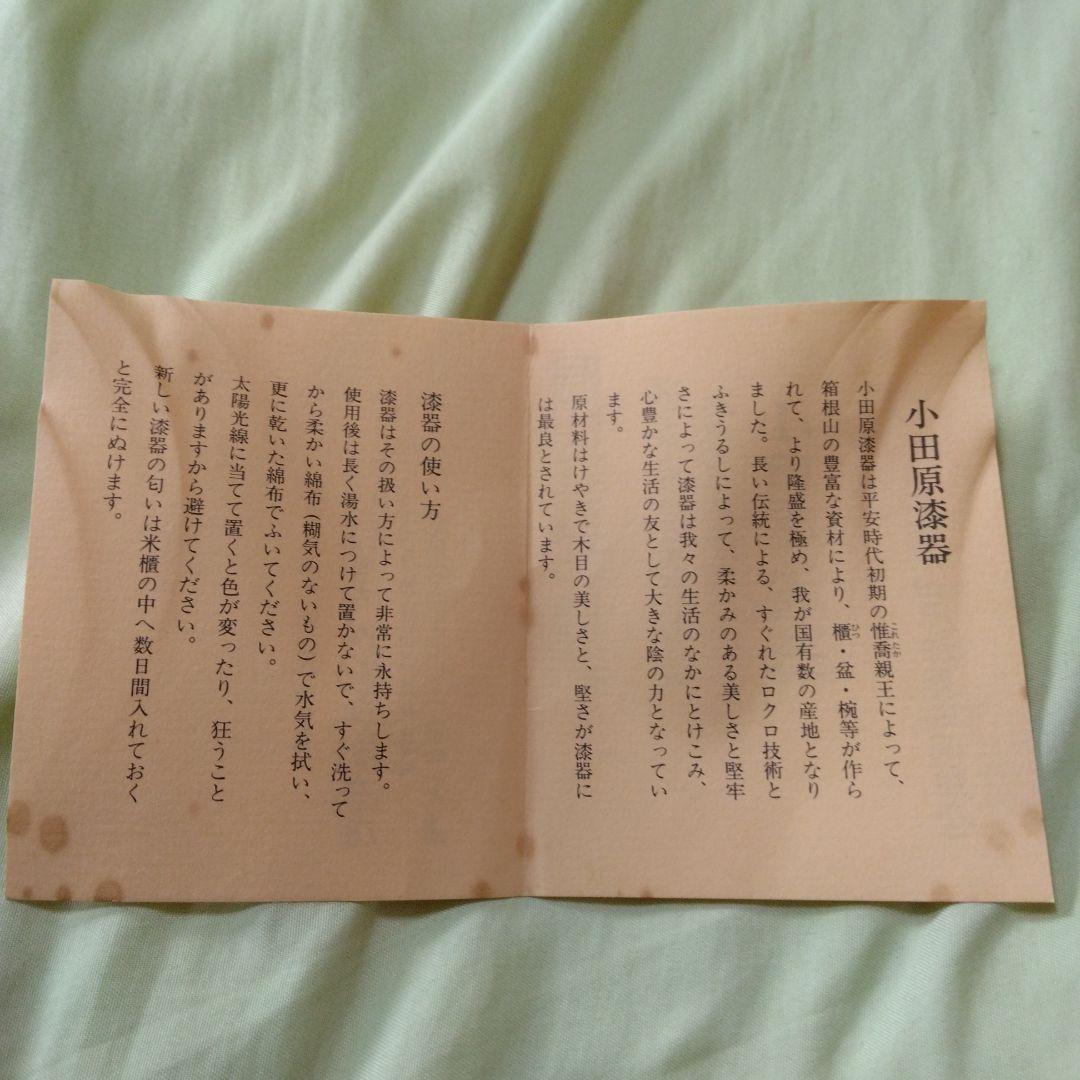 小田原漆器
小田原漆器は平安時代初期の惟喬親王によって、
これたか
箱根山の豊富な資材により、櫃・盆・椀等が作ら
ひつ
れて、より隆盛を極め、我が国有数の産地となり
ました。長い伝統による、すぐれたロクロ技術と
ふきうるしによって、柔かみのある美しさと堅牢
さによって漆器は我々の生活のなかにとけこみ、
心豊かな生活の友として大きな陰の力となってい
ます。
原材料はけやきで木目の美しさと、堅さが漆器に
は最良とされています。
漆器の使い方
漆器はその扱い方によって非常に永持ちします。
使用後は長く湯水につけて置かないで、すぐ洗って
から柔かい綿布(糊気のないもの)で水気を拭い、
更に乾いた綿布でふいてください。
太陽光線に当てて置くと色が変ったり、狂うこと
がありますから避けてください。
新しい漆器の匂いは米櫃の中へ数日間入れておく
と完全にぬけます。